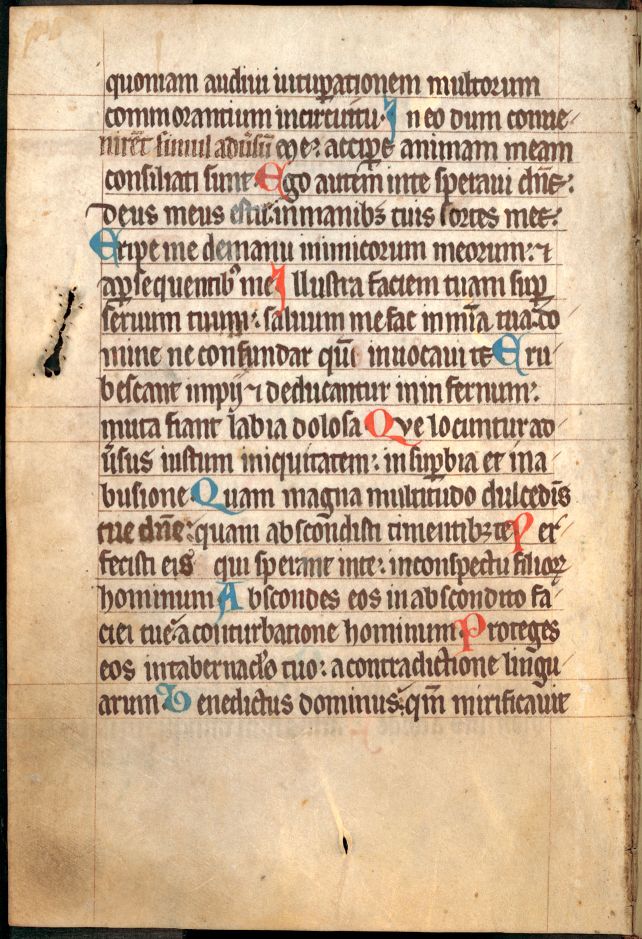 quoniam audiui uitup̱ationem multorum
commorantium incircuitu. In eo dum conue/
nirēt simul aduẜū me: accipe animam meam
consiliati sunt. Ego autem inte speraui dn̄e:
deus meus es tu: inmanibꝫ tuis sortes mee:
Eripe me demanu inimicorum meorum: ⁊
ap̱sequentibꝰ me Illustra faciem tuam sup̱
seruum tuum: saluum me fac in mīa tua: do
mine ne confundar qm̄ inuocaui te Eru/
bescant impij ⁊ deducantur in infernum:
muta fiant labia dolosa Que locuntur ad/
uẜsus iustum iniquitatem: insup̱bia et ina/
busione Quam magna multitudo dulcedīs
tue dn̄e: quam abscondisti timentibꝫ te Per/
fecisti eis qui sperant inte: inconspectu filioꝝ
hominum Abscondes eos inabscondito fa/
ciei tue: aconturbatione hominum. Proteges
eos intabernac̄lo tuo: acontradictione lingu/
arum Benedictus dominus: qm̄ mirificauit